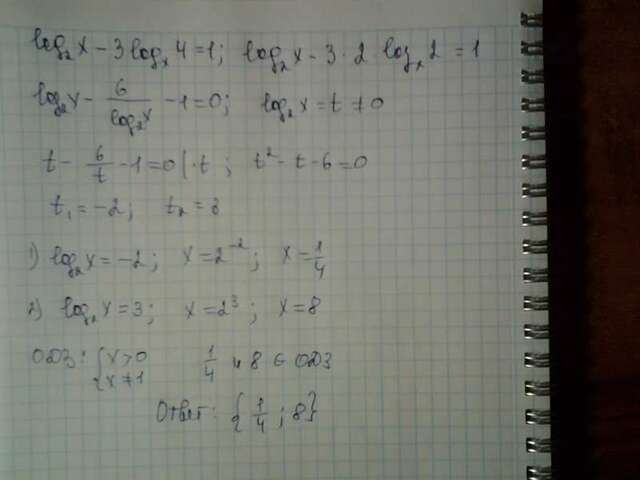 log₂x - 3log_x 4 = 1; log₂x - 3·2 log_x 2 = 1
log₂x - 6/log₂x - 1 = 0; log₂x = t ≠ 0
t - 6/t - 1 = 0 | ·t; t² - t - 6 = 0
t₁ = -2; t₂ = 3
1) log₂x = -2; x = 2⁻²; x = 1/4
2) log₂x = 3; x = 2³; x = 8
ОДЗ: { x > 0 1/4 и 8 ∈ ОДЗ
{ x ≠ 1
Ответ: {1/4; 8}